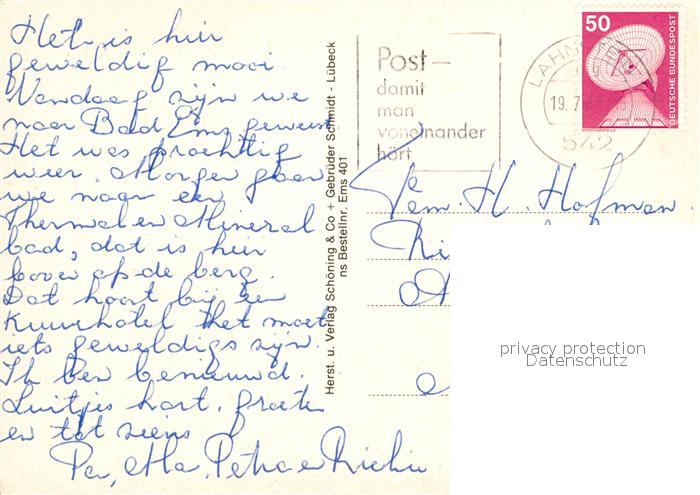 Het is hier
geweldig mooi
Vandaag zijn we
naar Bad Ems geweest.
Het was prachtig
weer. Morgen gaan
we naar een
Thermal en Mineral
bad, dat is hier
boven op de berg.
Dat hoort bij een
Kuurhotel het moet
iets geweldigs zijn.
Ik ben benieuwd.
Luitjes hart. groeten
en tot ziens
Pa, Ma, Petra en
Herst. u. Verlag Schöning & Co + Gebrüder Schmidt - Lübeck
ns Bestellnr. Ems 401
Post-
damit
man
voneinander
hört
LAHNSTEIN
19.7.
542
50
DEUTSCHE BUNDESPOST
Fam. H. Hofman
privacy protection
Datenschutz